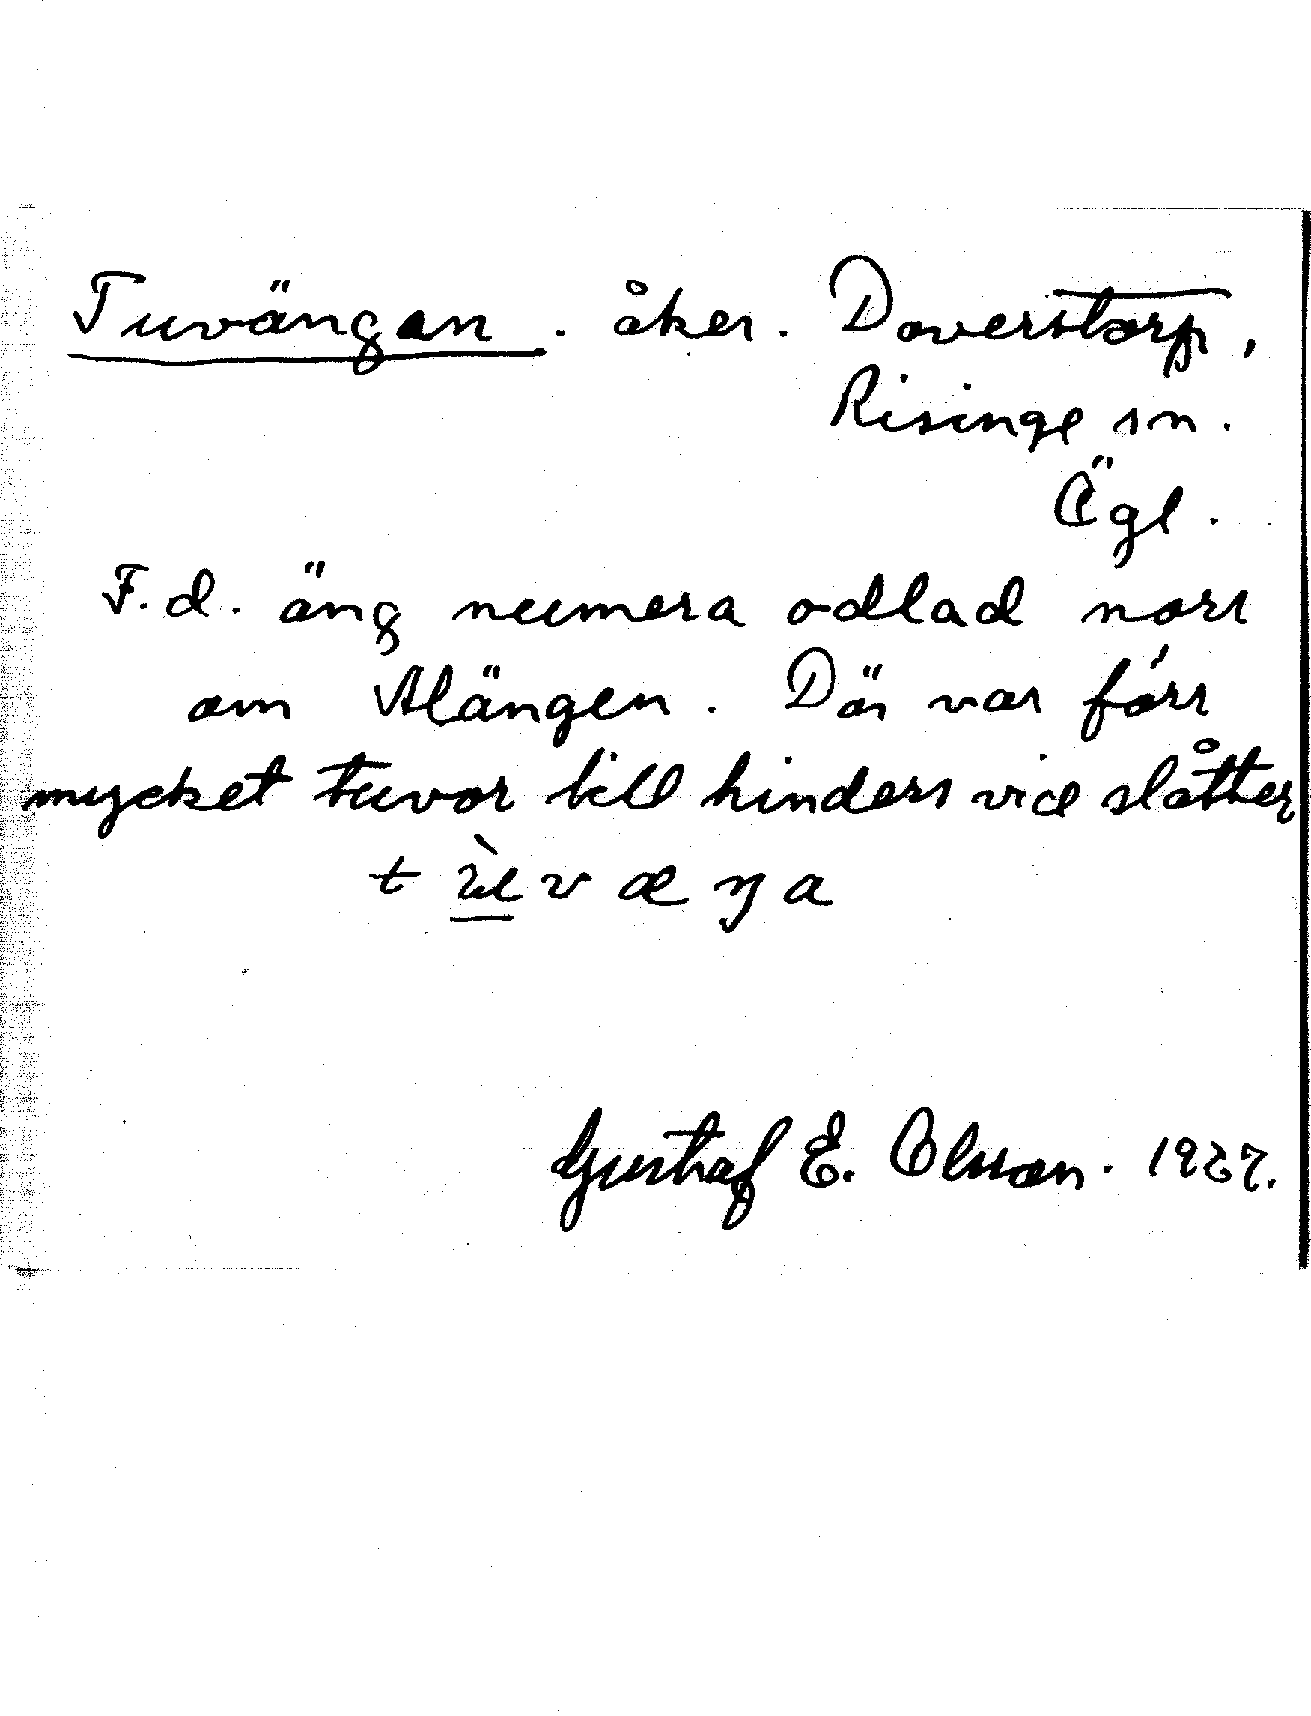 Tuvängan. åker. Doverstorp,
Risinge sn.
Ögl.
F.d. äng numera odlad norr
om Alängen. Där var förr
mycket tuvor till hinders vid slåtter
Gustaf E. Olsson. 1937.